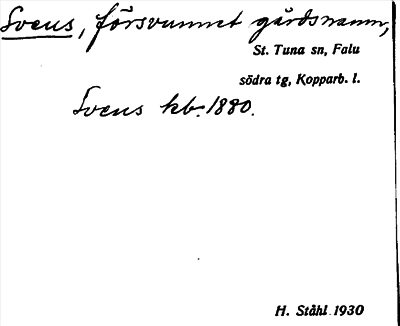 Svens, försvunnet gårdsnamn,
St. Tuna sn, Falu
södra tg, Kopparb. l.
Svens kb. 1880.
H. Ståhl 1930